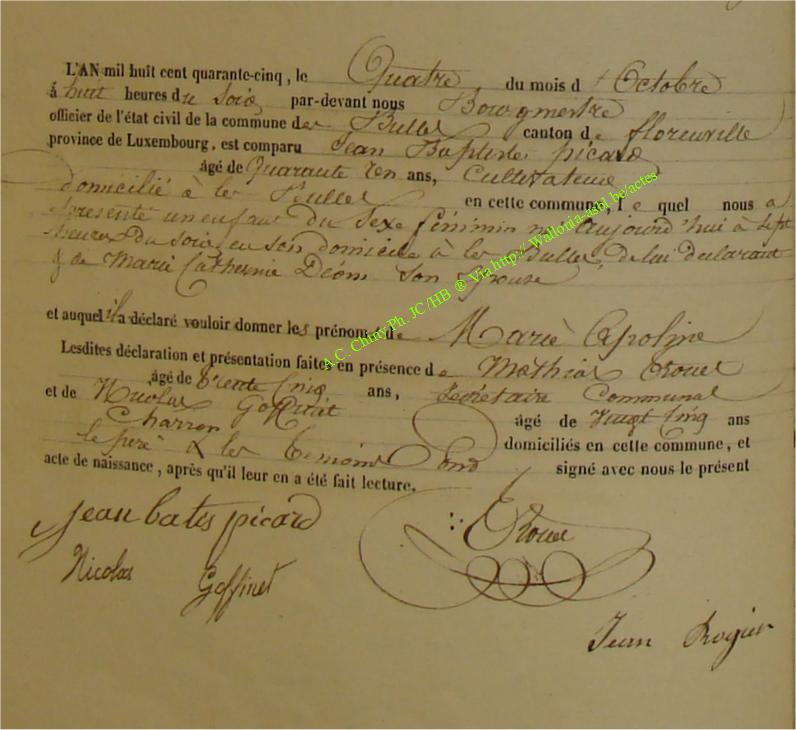 L'AN mil huit cent quarante-cinq, le Quatre du mois d'Octobre
à huit heures du Soir par-devant nous Bourgmestre
officier de l'état civil de la commune des Bulles canton de florenville
province de Luxembourg, est comparu Jean Baptiste picard
âgé de Quarante un ans, Cultivateur
domicilié à les Bulles en cette commune, le quel nous a
présenté un enfant du Sexe féminin né aujourd'hui à Sept
heures du Soir, en son domicile à les Bulles, de lui declarant
& de Marie Catherine Déom Son Epouse
et auquel il a déclaré vouloir donner les prénoms de Marie Apoline
Lesdites déclaration et présentation faites en présence de Mathias
âgé de trente Cinq ans, Secrétaire Communal
et de Nicolas Goffinet âgé de Vingt Cinq ans
Charron domiciliés en cette commune, et
le père & les temoins Ond signé avec nous le présent
acte de naissance, après qu'il leur en a été fait lecture.
jean batis picard
Nicolas Goffinet
Jean Rogier
A.C. Chiny Ph. JC /HB ® Via http:// Wallonia-asbl.be/actes